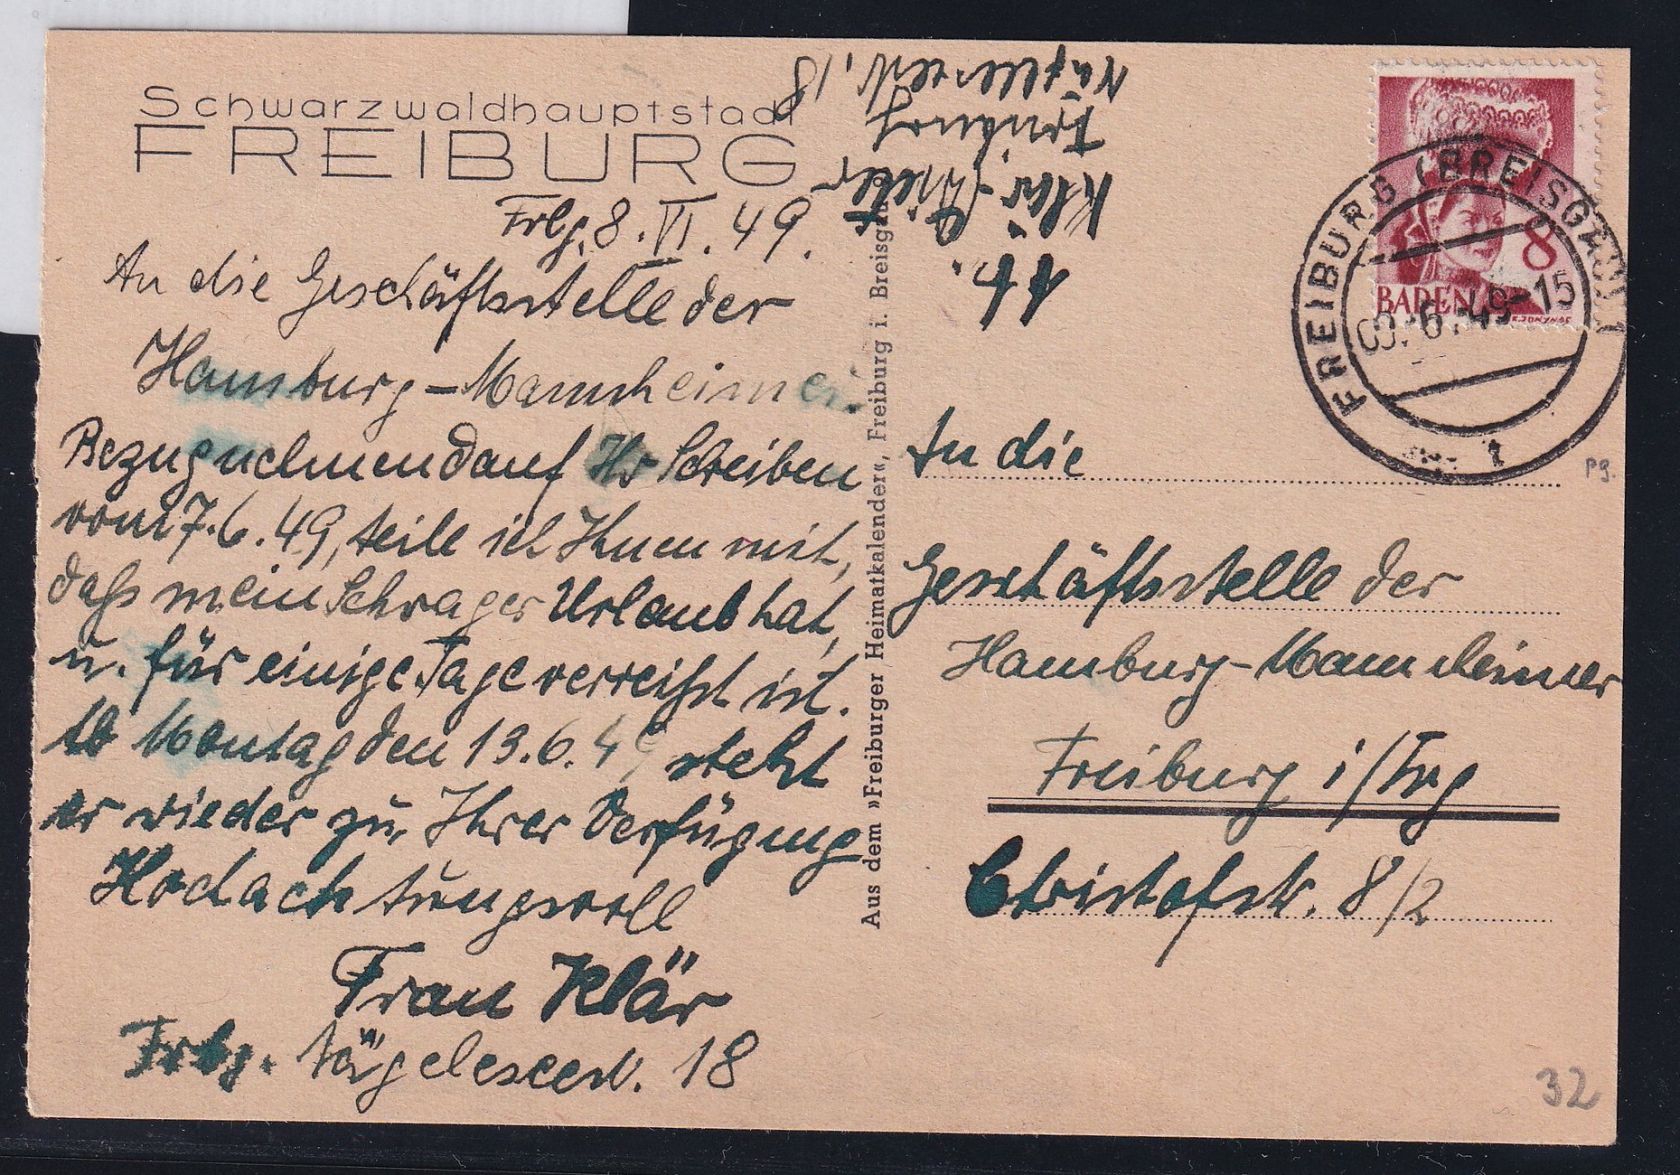 Schwarzwaldhauptstadt
FREIBURG
Frbg. 8. VI. 49.
An die Geschäftsstelle der
Hamburg-Mannheimer.
Bezugnehmend auf Ihr Schreiben
vom 7.6.49, teile ich Ihnen mit,
daß mein Schwager Urlaub hat,
u. für einige Tage verreißt ist.
Montag den 13.6.49 steht
er wieder zu Ihrer Verfügung
Hochachtungsvoll
Frau Klär
Frbg. Nägeleseestr. 18
Aus dem »Freiburger Heimatkalender«, Freiburg i. Breisgau
Ab.
Klär
Freiburg
Nägeleseestr. 18
8
BADEN
FREIBURG (BREISGAU) 1
09.-6.49-15
An die
Geschäftsstelle der
Hamburg-Mannheimer
Freiburg i/Brg
Christofstr. 8/2
P9.
32